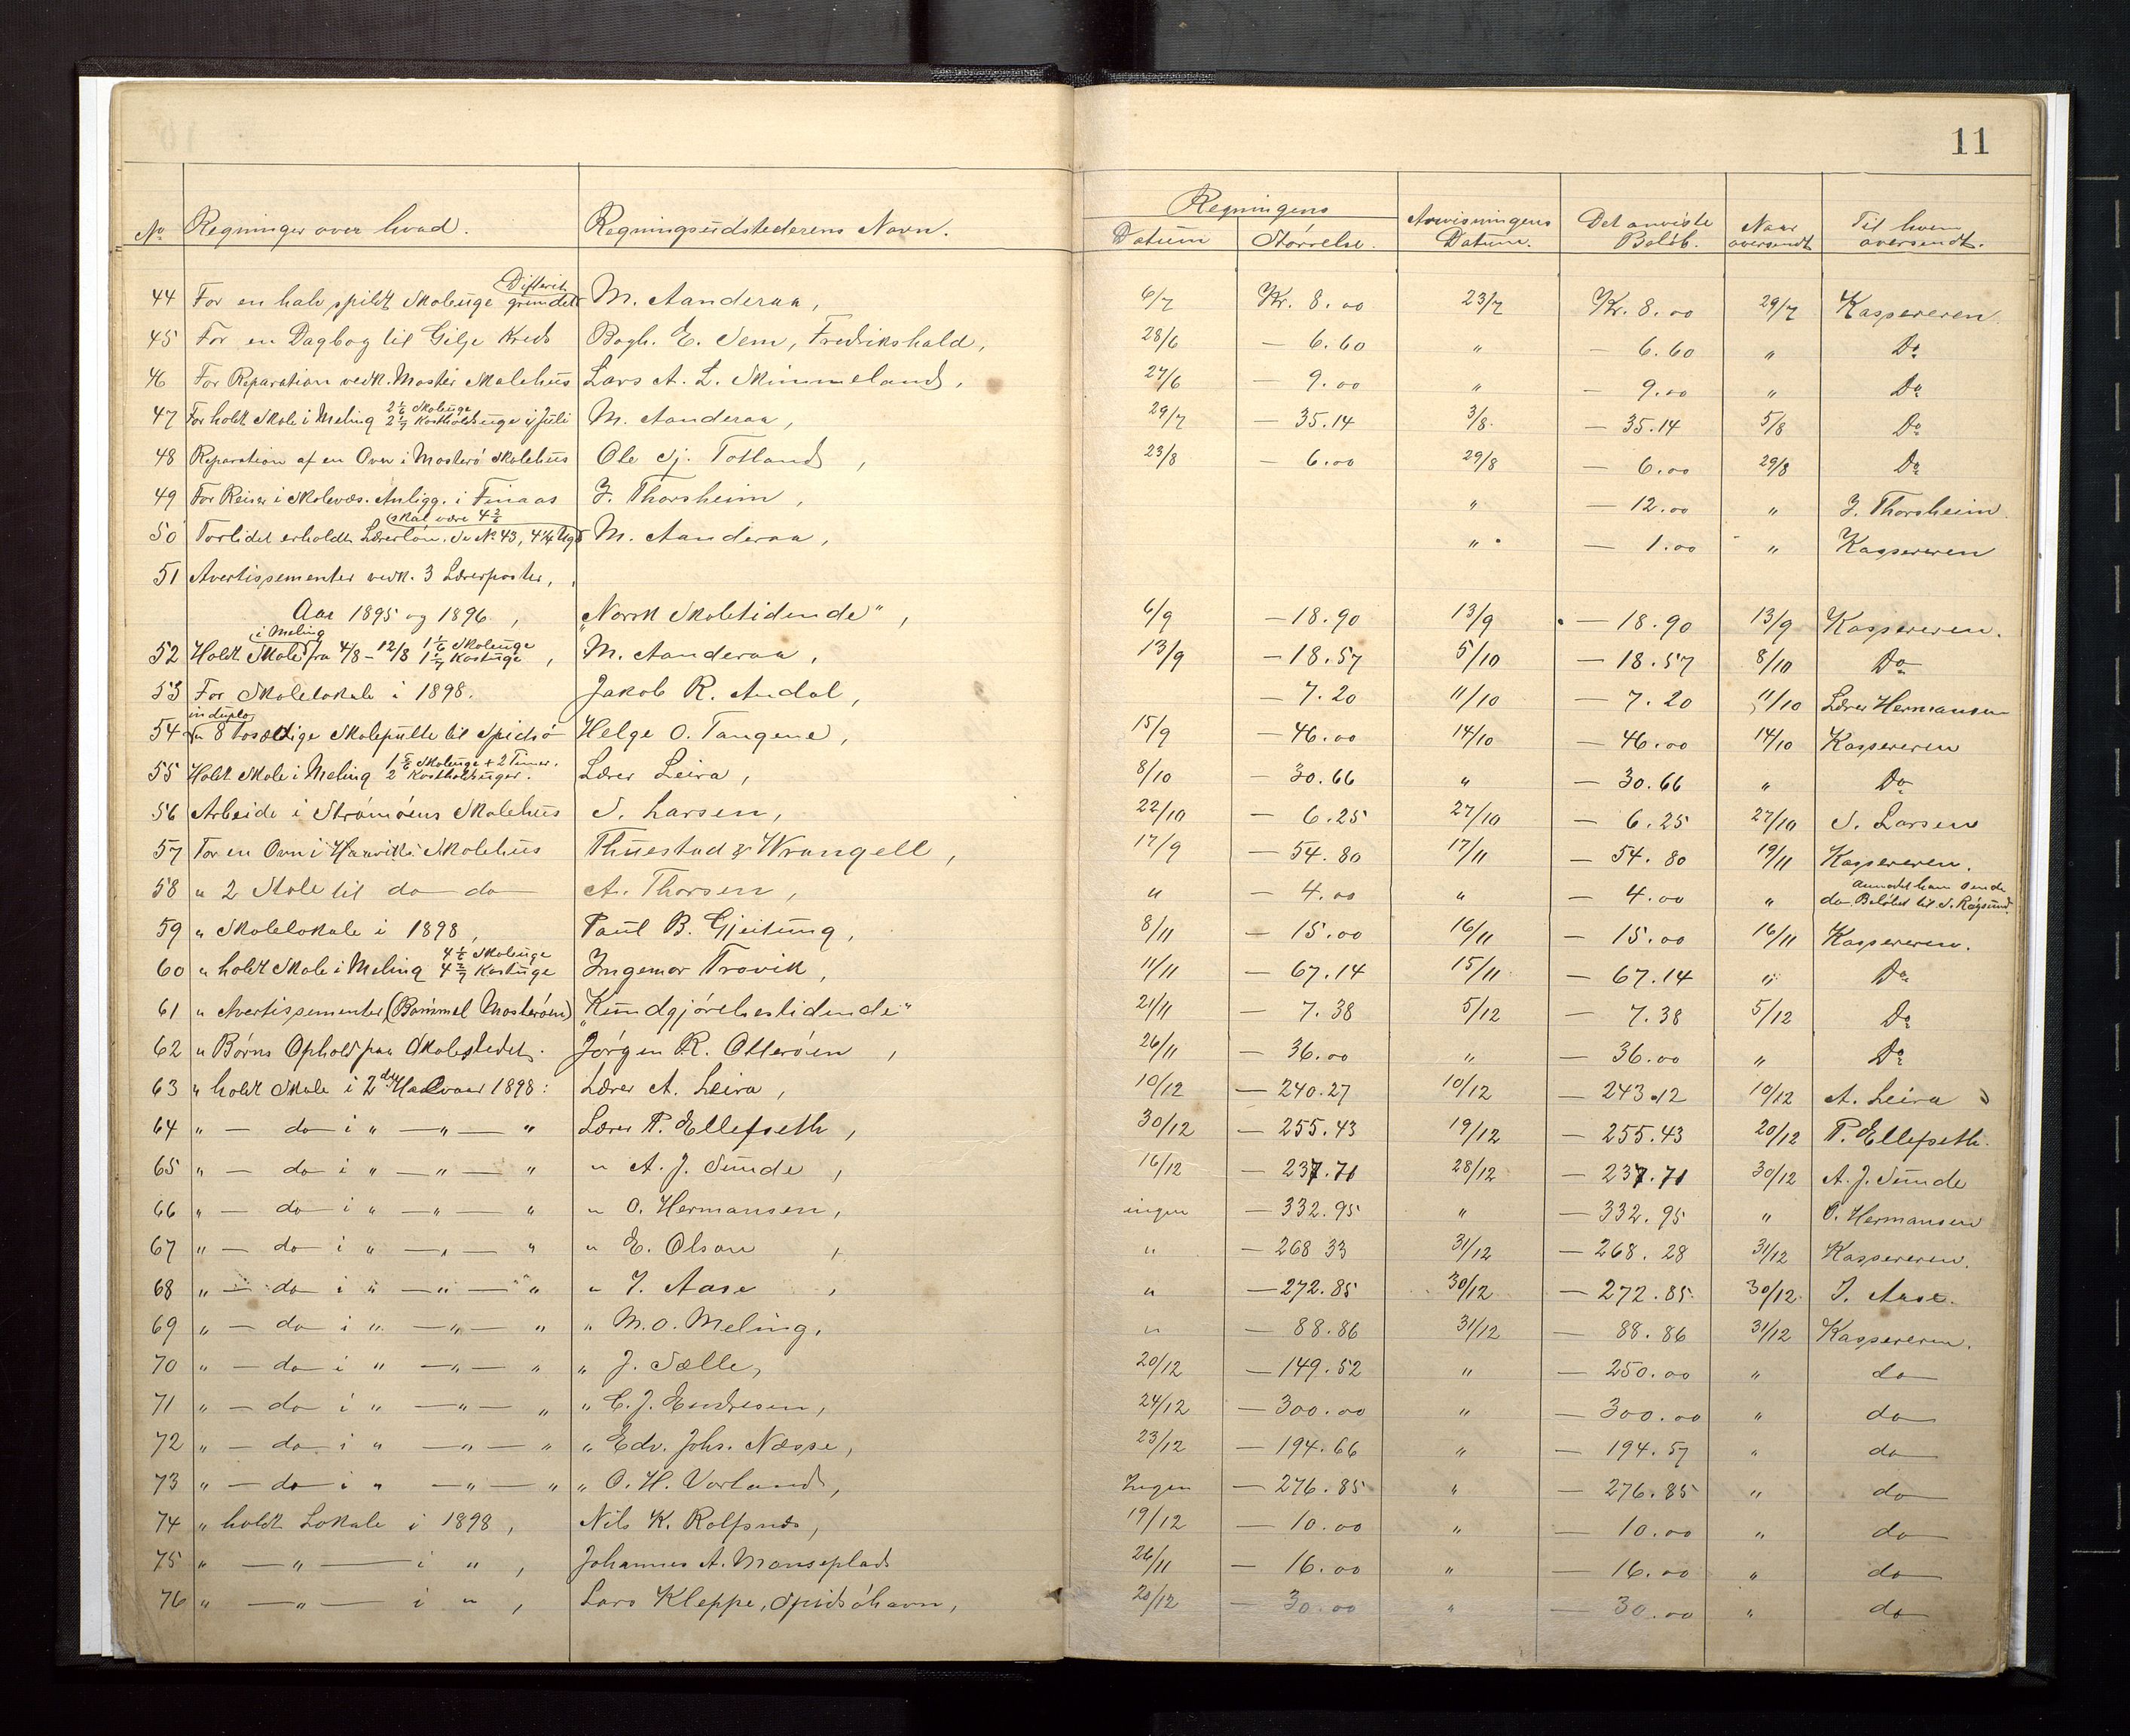 11
No Regninger over hvad. Regningsudstederens Navn. Regningens Datum Størrelse. Anvisningens Datum. Det anviste Beløb. Naar oversendt Til hvem oversendt.
44 For en halv spildt Skoleuge grundet Difterit M. Aanderaa, 6/7 Kr. 8.00 23/7 Kr. 8.00 29/7 Kasereren
45 For en Dagbog til Gilje Kreds Bogh. E. Sem, Fredrikshald, 28/6 — 6.60 " — 6.60 " Do
46 For Reparation vedk. Moster Skolehus Lars A. L. Skimmeland, 27/6 — 9.00 " — 9.00 " Do
47 For holdt Skole i Meling 2 1/6 Skoleuge 2 1/7 Kostholdsuge i Juli M. Aanderaa, 29/7 — 35.14 3/8 — 35.14 5/8 Do
48 Reparation af en Ovn i Mosterø Skolehus Ole Sj. Totland, 23/8 — 6.00 29/8 — 6.00 29/8 Do
49 For Reiser i Skolevæs. Anligg. i Finaas J. Thorsheim, " — 12.00 " J. Thorsheim
50 Forlidet erholdt Lærerløn. Se No 43, 4 1/6 Uge (skal være 4 2/6 M. Aanderaa, " — 1.00 " Kasereren
51 Avertissementer vedk. 3 Lærerposter,
Aar 1895 og 1896, "Norsk Skoletidende", 6/9 — 18.90 13/9 — 18.90 13/9 Kasereren.
52 Holdt Skole i Meling fra 4/8 – 12/8 1 1/6 Skoleuge 1 1/7 Kostuge, M. Aanderaa, 13/9 — 18.57 5/10 — 18.57 8/10 Do
53 For Skolelokale i 1898. Jakob R. Andal, — 7.20 11/10 — 7.20 11/10 Lærer Hermansen
54 in duplo " 8 tosædige Skolepulte til Spidsø Helge O. Tangene, 15/9 — 46.00 14/10 — 46.00 14/10 Kasereren
55 Holdt Skole i Meling 1 5/6 Skoleuge + 2 Timer. 2 Kostholdsuger. Lærer Leira, 8/10 — 30.66 " — 30.66 " Do
56 Arbeide i Strømøens Skolehus S. Larsen, 22/10 — 6.25 27/10 — 6.25 27/10 S. Larsen
57 For en Ovn i Haaviks Skolehus Thuestad & Wrangell, 17/9 — 54.80 17/11 — 54.80 19/11 Kasereren.
58 " 2 Stole til do do A. Thorsen, " — 4.00 " — 4.00 " do Anmodet ham sende Beløbet til S. Røgsund.
59 " Skolelokale i 1898, Paul B. Gjeitung, 8/11 — 15.00 16/11 — 15.00 16/11 Kasereren.
60 " holdt Skole i Meling 4 1/6 Skoleuge 4 2/7 Kostuge Ingemar Trovik, 11/11 — 67.14 15/11 — 67.14 " Do
61 " Avertissementer (Bømmel Mosterøen) "Kundgjørelsestidende" 21/11 — 7.38 5/12 — 7.38 5/12 Do
62 " Børns Ophold paa Skolestedet. Jørgen R. Otterøen, 26/11 — 36.00 " — 36.00 " Do
63 " holdt Skole i 2det Halvaar 1898: Lærer A. Leira, 10/12 — 240.27 10/12 — 243.12 10/12 A. Leira
64 " — do i " — " — " Lærer P. Ellefseth, 30/12 — 255.43 19/12 — 255.43 20/12 P. Ellefseth.
65 " — do i " — " — " " A. J. Sunde, 16/12 — 237.71 28/12 — 237.71 30/12 A. J. Sunde
66 " — do i " — " — " " O. Hermansen, ingen — 332.95 " — 332.95 " O. Hermansen
67 " — do i " — " — " " E. Olson, " — 268 33 31/12 — 268.28 31/12 Kasereren.
68 " — do i " — " — " " I. Aase, " — 272.85 30/12 — 272.85 30/12 I. Aase.
69 " — do i " — " — " " M. O. Meling, " — 88.86 31/12 — 88.86 31/12 Kasereren.
70 " — do i " — " — " " J. Sælle, 20/12 — 149.52 " — 250.00 " do
71 " — do i " — " — " " C. J. Endresen, 24/12 — 300.00 " — 300.00 " do
72 " — do i " — " — " " Edv. Johs. Næsse, 23/12 — 194.66 " — 194.57 " do
73 " — do i " — " — " " O. H. Vorland, Ingen — 276.85 " — 276.85 " do
74 " holdt Lokale i 1898, Nils K. Rolfsnes, 19/12 — 10.00 " — 10.00 " do
75 " — " — i ", Johannes A. Monseplads 26/11 — 16.00 " — 16.00 " do
76 " — " — i ", Lars Kleppe, Spidsøhavn, 20/12 — 30.00 " — 30.00 " do